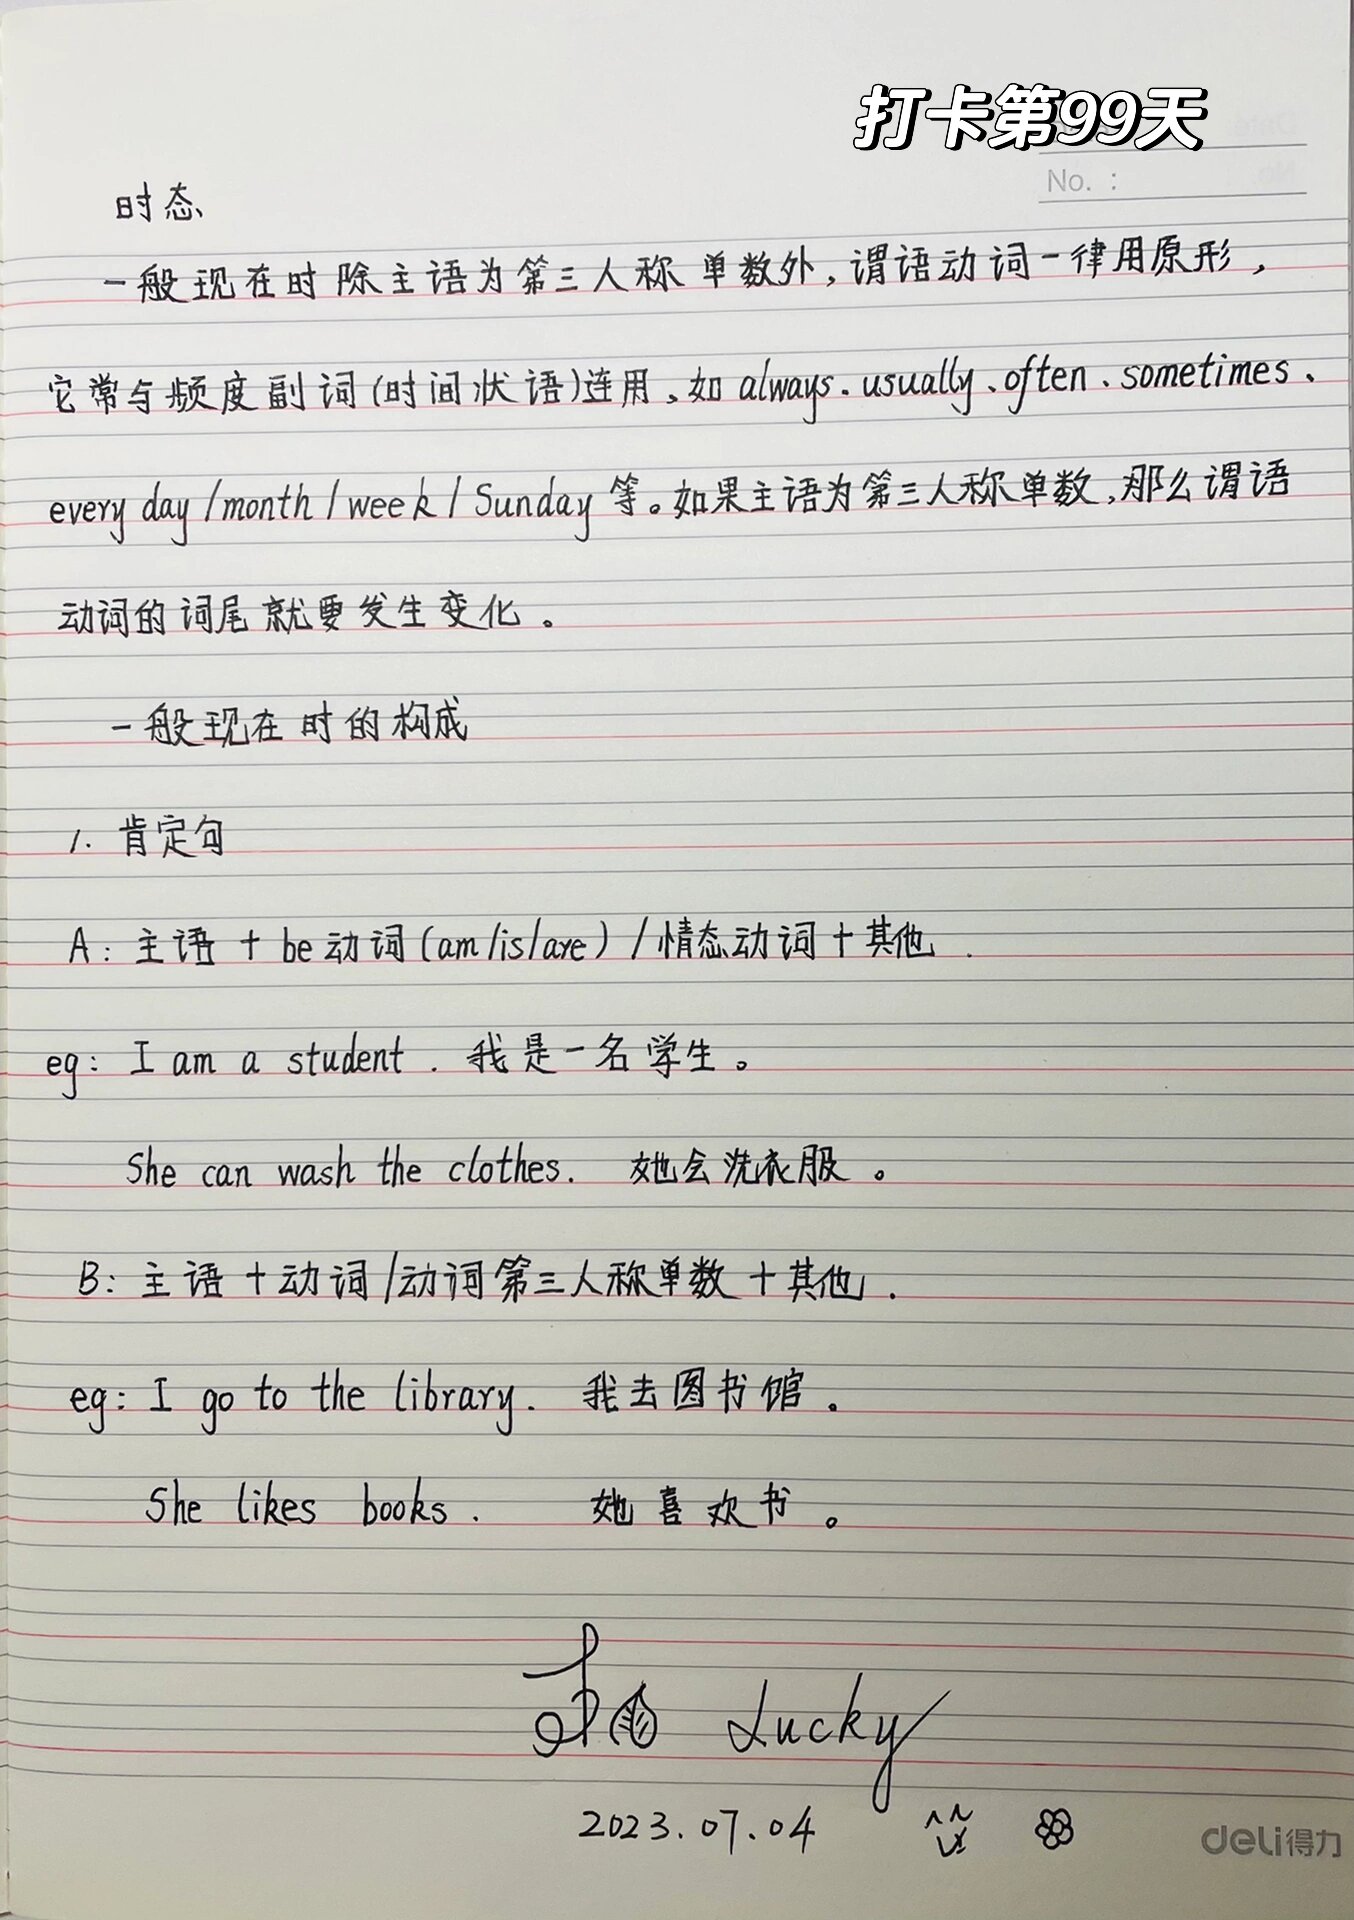 打卡第99天
No. :
时态
一般现在时除主语为第三人称单数外,谓语动词一律用原形,
它常与频度副词(时间状语)连用、如always、usually、often、sometimes、
every day/month/week/Sunday等。如果主语为第三人称单数,那么谓语
动词的词尾就要发生变化。
一般现在时的构成
1. 肯定句
A: 主语 + be动词(am/is/are)/情态动词+其他.
eg: I am a student. 我是一名学生。
She can wash the clothes. 她会洗衣服。
B: 主语+动词/动词第三人称单数+其他.
eg: I go to the library. 我去图书馆。
She likes books. 她喜欢书。
雨 Lucky
2023.07.04
deli得力